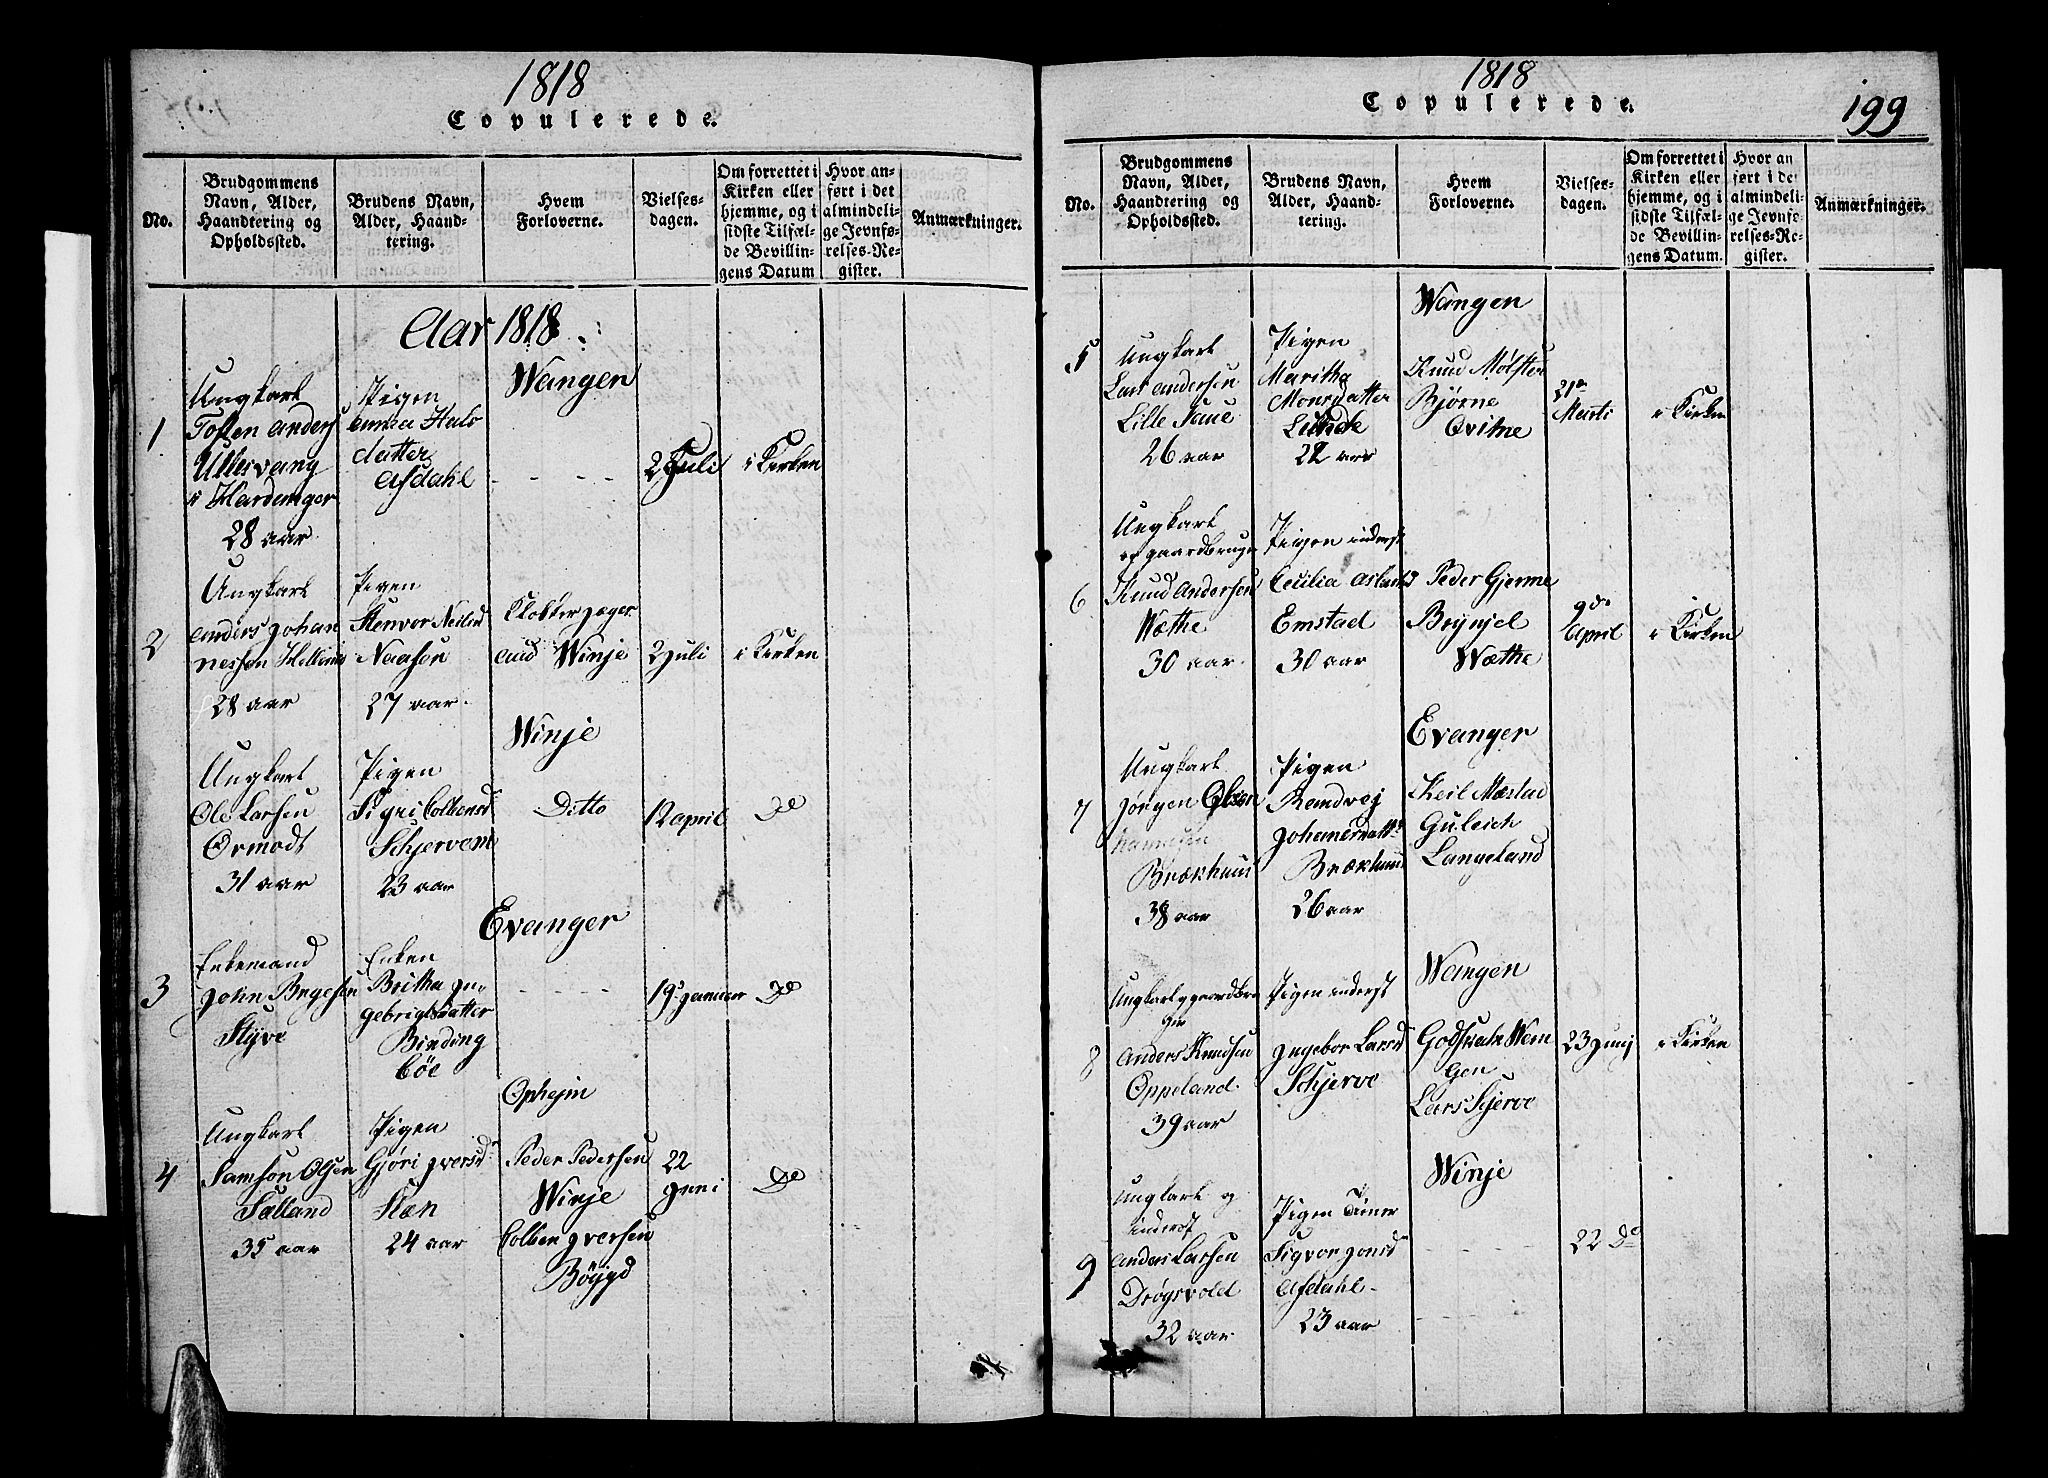 1818
Copulerede.
No.
Brudgommens
Navn, Alder,
Haandtering og
Opholdssted.
Brudens Navn,
Alder, Haand-
tering.
Hvem
Forloverne.
Vielses-
dagen.
Om forrettet i
Kirken eller
hjemme, og i
sidste Tilfæl-
de Bevillin-
gens Datum
Hvor an-
ført i det
almindeli-
ge Jevnfø-
relses-Re-
gister.
Anmærkninger.
Aar 1818
Wangen
1
Ungkarl
Tosten anders
Ullesvang
i Hardanger
28 aar
Pigen
anna
datter
Afdahl
2 Juli
i Kirken
2
Ungkarl
anders Johan
nessen
28 aar
Pigen
Stenvor Neilsd
Naasen
27 aar.
Winje
2 Juli
i Kirken
Winje
Ungkarl
Ole Larsen
Ormodt
31 aar
Pigen
Sigri Colbensd
Schjervem
23 aar
Ditto
12 april
Do
Evanger
3
Enkemand
John Brynjelsen
Styve
Enken
Britha In
gebrigtsdatter
Binding
böe
19 Januar
Do
Opheim
4
Ungkarl
Samson Olsen
Sælland
35 aar
Pigen
Gjöri Iversd
Slæn
24 aar
Peder Pedersen
Winje
Colben Iversen
Böygd
22
Juni
Do
1818
Copulerede.
199
No.
Brudgommens
Navn, Alder,
Haandtering og
Opholdssted.
Brudens Navn,
Alder, Haand-
tering.
Hvem
Forloverne.
Vielses-
dagen.
Om forrettet i
Kirken eller
hjemme, og i
sidste Tilfæl-
de Bevillin-
gens Datum.
Hvor an
ført i det
almindeli-
ge Jevnfø-
relses-Re-
gister.
Anmærkninger.
Wangen
5
Ungkarl
Lars andersen
Lille Saue
26 aar
Pigen
Maritha
Monsdatter
Lunde
22 aar
Knud Mølster
Bjørne
Qvitne
21de
Marti
i Kirken
6
Ungkarl
og gaardbruger
Knud Andersen
Wæthe
30 aar
Pigen inderst
Cecilia Aslaksd
Emstad
30 aar
Peder Gjerme
Brynjel
Wæthe
9de
april
i Kirken
Evanger
7
Ungkarl
Jörgen Olsen
Brækhuus
38 aar
Pigen
Randvej
Johanesdattr
Brækhuus
26 aar
Keil Mæstad
Guleich
Langeland
Wangen
8
Ungkarl og gaardbru
ger
Anders Knudsen
Oppeland.
39 aar
Pigen inderst
Ingebor Larsd
Schjerve
Godskalk Wan
gen
Lars Schjerve
23 Junij
i Kirken
Winje
9
Ungkarl og
inderst
Anders Larsen
Drøgsvold
32 aar
Pigen tiener
Sigvor Jonsd
Afdahl
23 aar
22 Do